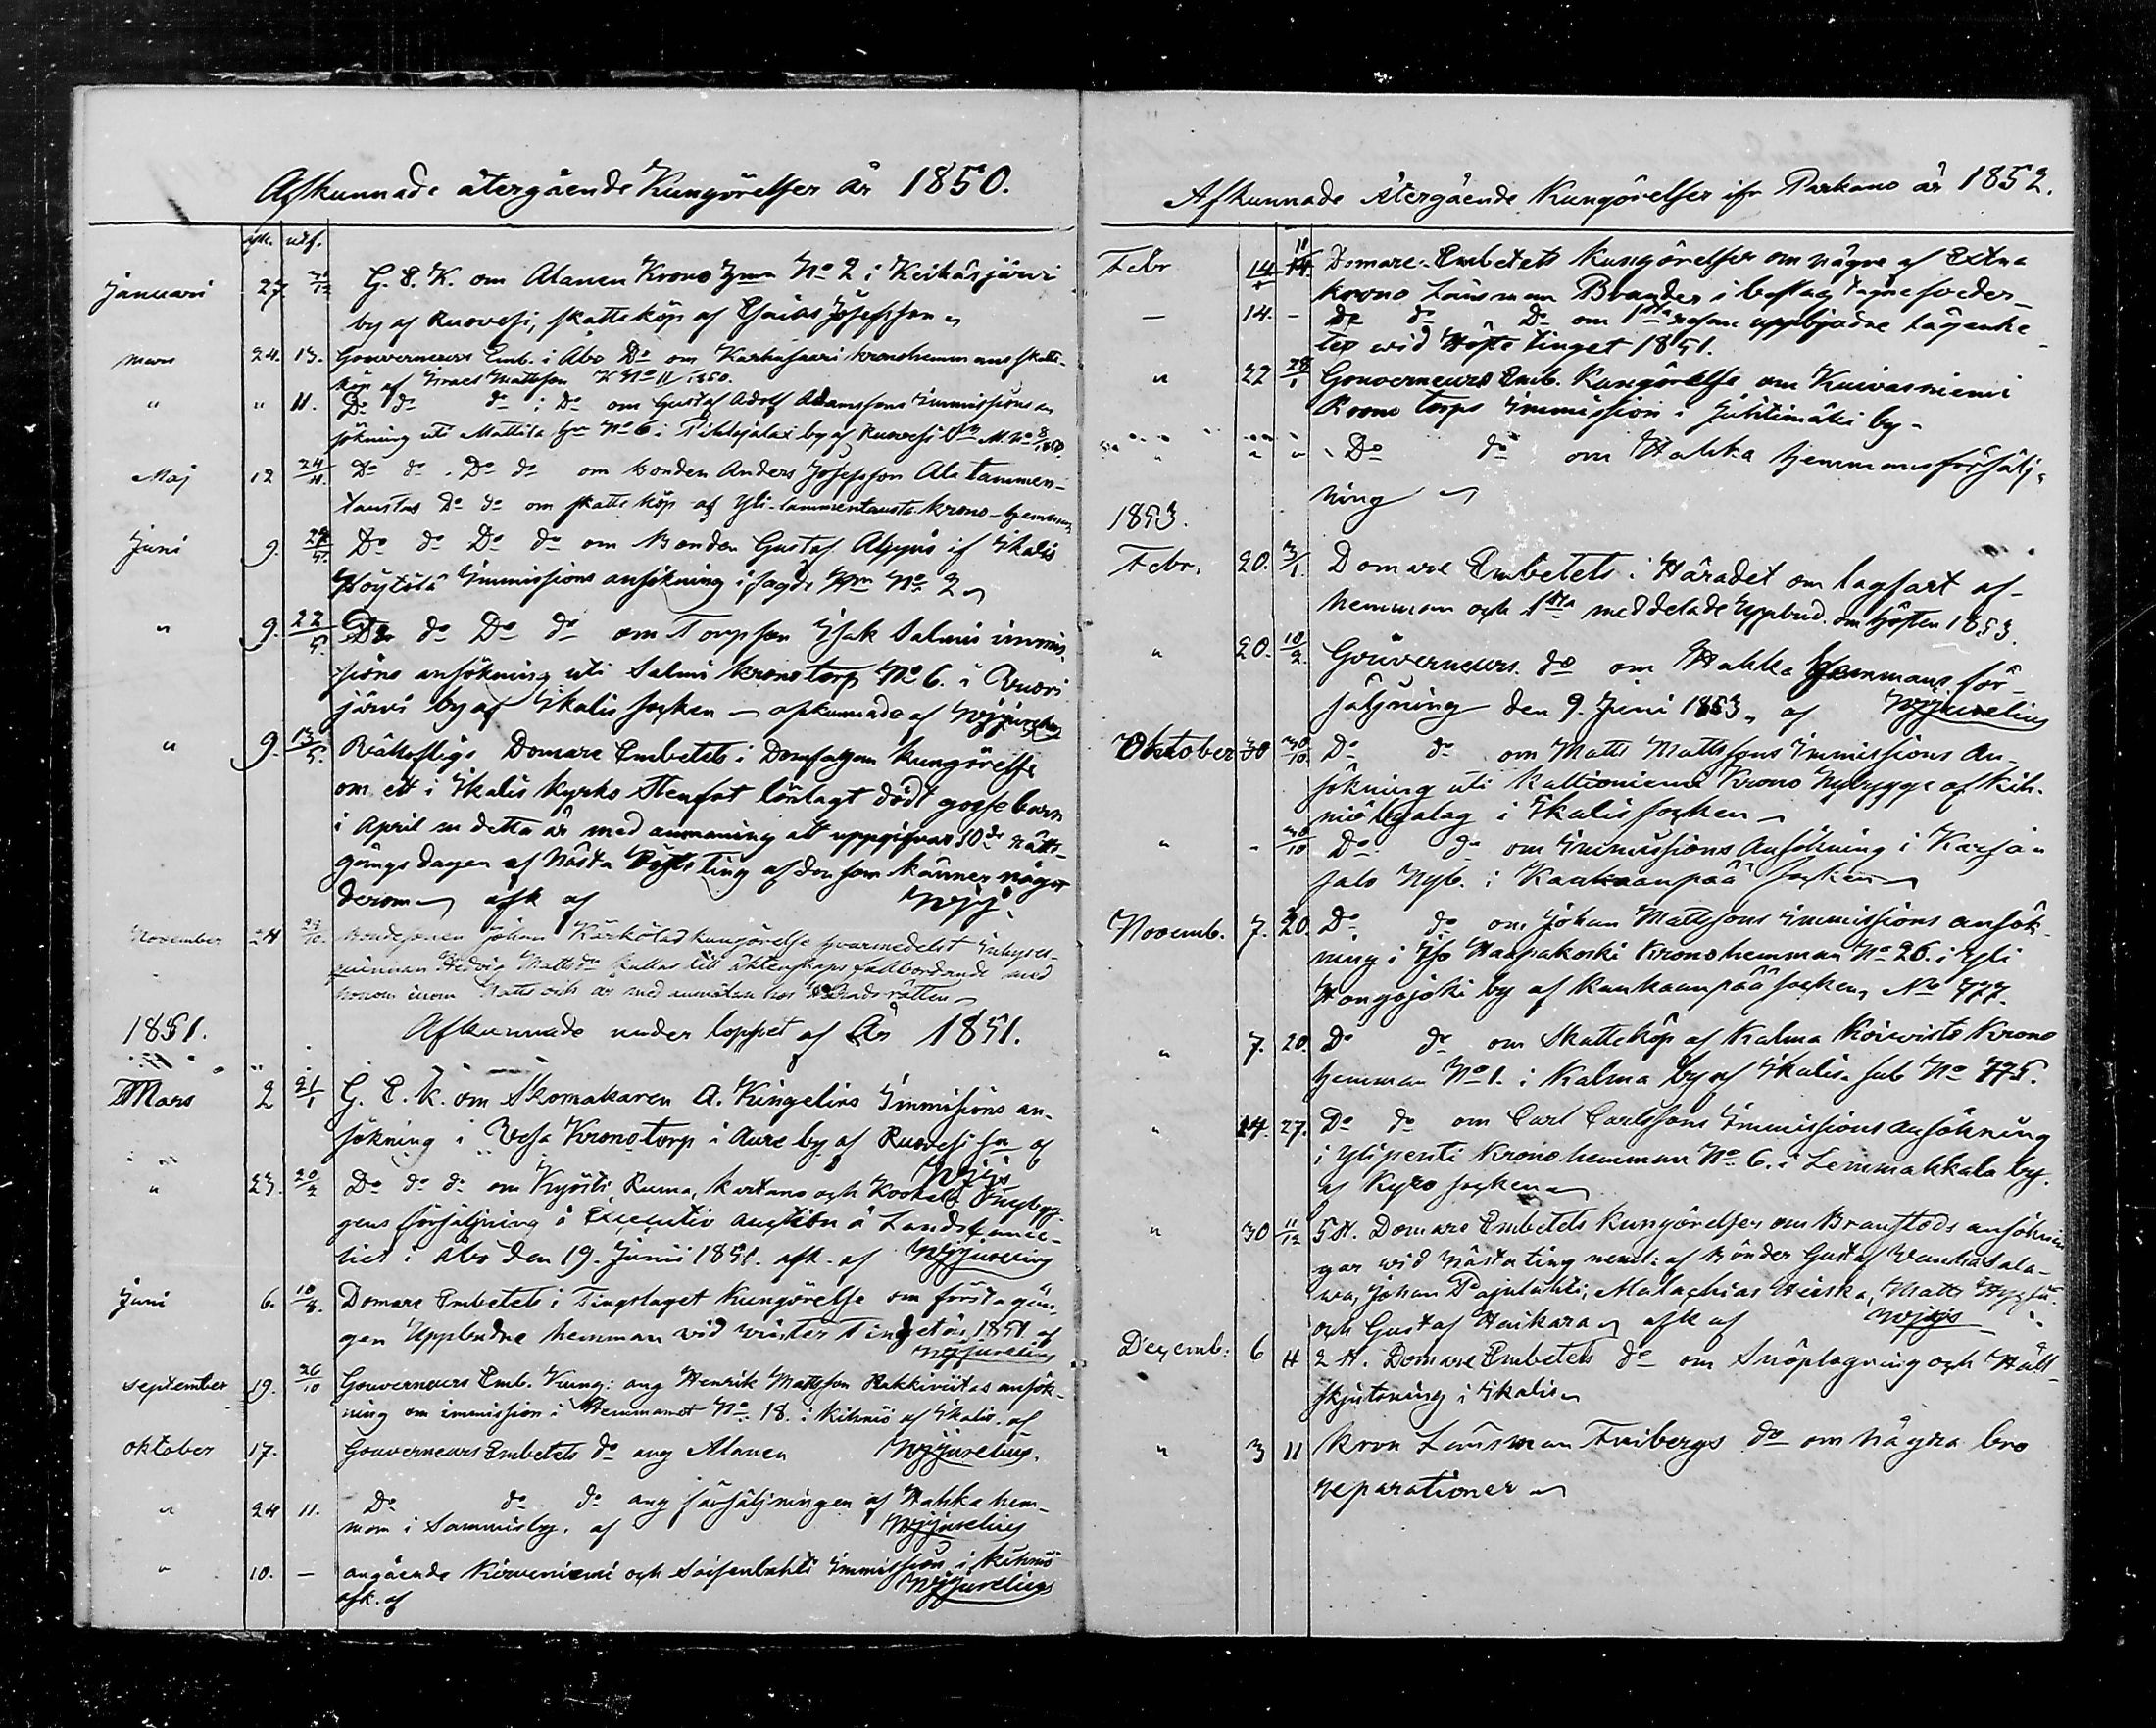 Afkunnade återgående Kungörelser år 1850.
afk. utf.
Januari 27. 31/12 G. E. K. om Alanen Krono Hmn No 2 i Keihäsjärvi
by af Ruovesi, skatteköp af Esaias Josefsson
mars 24. 13. Gouverneurs Emb. i Åbo Do om Karhusaari kronohemmans skatte-
köp af Israel Mattsson K No 11/1850.
" " 11. Do do do i Do om Gustaf Adolf Adamssons Immissions an
sökning uti Mattila hn No 6 i Pihlajalax by af Ruovesi Sn M. No 8/1850.
Maj 12 24/4. Do do. Do do om bonden Anders Josefsson Ala Lammen-
taustas Do do om skatte köp af Yli-Lammentausta krono-hemman
Juni 9. 24/5. Do do Do do om Bonden Gustaf Alppis if Ikalis
Höytölä Immissions ansökning i sagde Hmn No 2
" 9. 22/5. Do do Do do om Torpson Isak Salmis immis
sions ansökning uti Salmi kronotorp No 6. i Vuori
järvi by af Ikalis socken - afkunnade af Wjjurelius
" 9. 13/5. Rättsliga Domare Embetets i Domsagan kungörelse
om ett i Ikalis kyrko Stenfot lönlagt dödt gossebarn
i April m detta år med anmaning att uppgifvas 10de rätte-
gångs dagen af Nästa Höste ting af den som känner något
derom afk af Wjj.
November 24 27/10. Bondesonen Johan Kärkölas kungörelse hvarmedelst Inhyses-
qvinnan Hedvig Mattsdr kallas till äktenskaps fullbordande med
honom inom Natt och år med hos Häradsrätten
1851. Afkunnade under loppet af År 1851.
Mars 2 21/1 G. E. K. om Skomakaren A. Kingelins Immissions an-
sökning i Vesa Kronotorp i Aure by af Ruovesi sn af
Wjjs
" 23. 20/2 Do do do om Kyösti, Ruma, Kartano och Koskela Nybyg-
gens försäljning å Executiv auction å Landscance-
liet i Åbo den 19. Junii 1851. afk. af Wjjurelius
Juni 6. 10/3. Domare Embetets i Tingslaget Kungörelse om första gån-
gen Uppbudne hemman vid vinter Tinget år 1851 af
Wjjurelius
September 19. 26/10 Gouverneurs Emb. Kung: ang Henrik Mattsson Rakkiviitas ansök-
ning om immission i Hemmanet No 18. i Kihniö af Ikalis. af
oktober 17. Gouverneurs Embetets do ang Alanen Wjjurelius.
" 24 11. Do do do ang försäljningen af Hahka hem-
man i Sammi by. af Wjjurelius
" 10. - angående Kirveniemi och Immission i Kihniö
afk. af Wjjurelius
Afkunnade Återgående Kungörelser ifr Parkano år 1852.
Febr 14 11 Domare-Embetets Kungörelser om någre af Extra
krono Länsman Brander i beslag tagne foder_
- 14. - do do Do om 1sta resan uppbjudne lägenhe-
ter wid Höste tinget 1851.
" 22 28/1 Gouverneurs Emb. Kungörelse om Kuivasniemi
Krono torps immission i by-
" " " Do do om Hahka hemmansförsälj-
ning
1853.
Febr. 20. 3/1. Domare Embetets i Häradet om lagfart af-
hemman och 1sta meddelade Uppbud. om hösten 1853.
" 20. 10/2. Gouverneurs. do om Hahka Hemmans för-
säljning den 9. Juni 1853, af Wjjurelius
Oktober 30 30/10. Do do om Matts Mattssons Immissions An-
sökning uti Kallioniemi Krono Nybygge af Kih-
niö byalag i Ikalis socken
" - 30/10 Do do om Immissions Ansökning i Karja-
salo Nyb. i Kankaanpää Socken
Novemb. 7. 20. Do do om Johan Mattsons Immissions ansök-
ning i Iso Haapakoski Kronohemman No 26. i Yli
Hongojoki by af Kankaanpää socken, No 777.
" 7. 20. Do do om Skatteköp af Kalma Koivisto Krono
hemman No 1. i Kalma by af Ikalis sub No 775.
" 14. 27. Do do om Carl Carlssons Immissions ansökning
i Ylipenti Kronohemman No 6. i Lemmakkala by.
af Kyro socken
" 30 11/12 5 st. Domare Embetets kungörelser om Brandstods ansöknin
gar wid nästa ting neml: af Bönder Gustaf Vanhasala-
wa, Johan Pajulahti, Malachias Heiska, Matts
och Gustaf Haikara afk af Wjjs
Decemb. 6 4 2 st. Domare Embetets do om Snöplogning och Håll-
skjutsning i Ikalis
" 3 11 Kron Länsman Fribergs do om några bro
reparationer